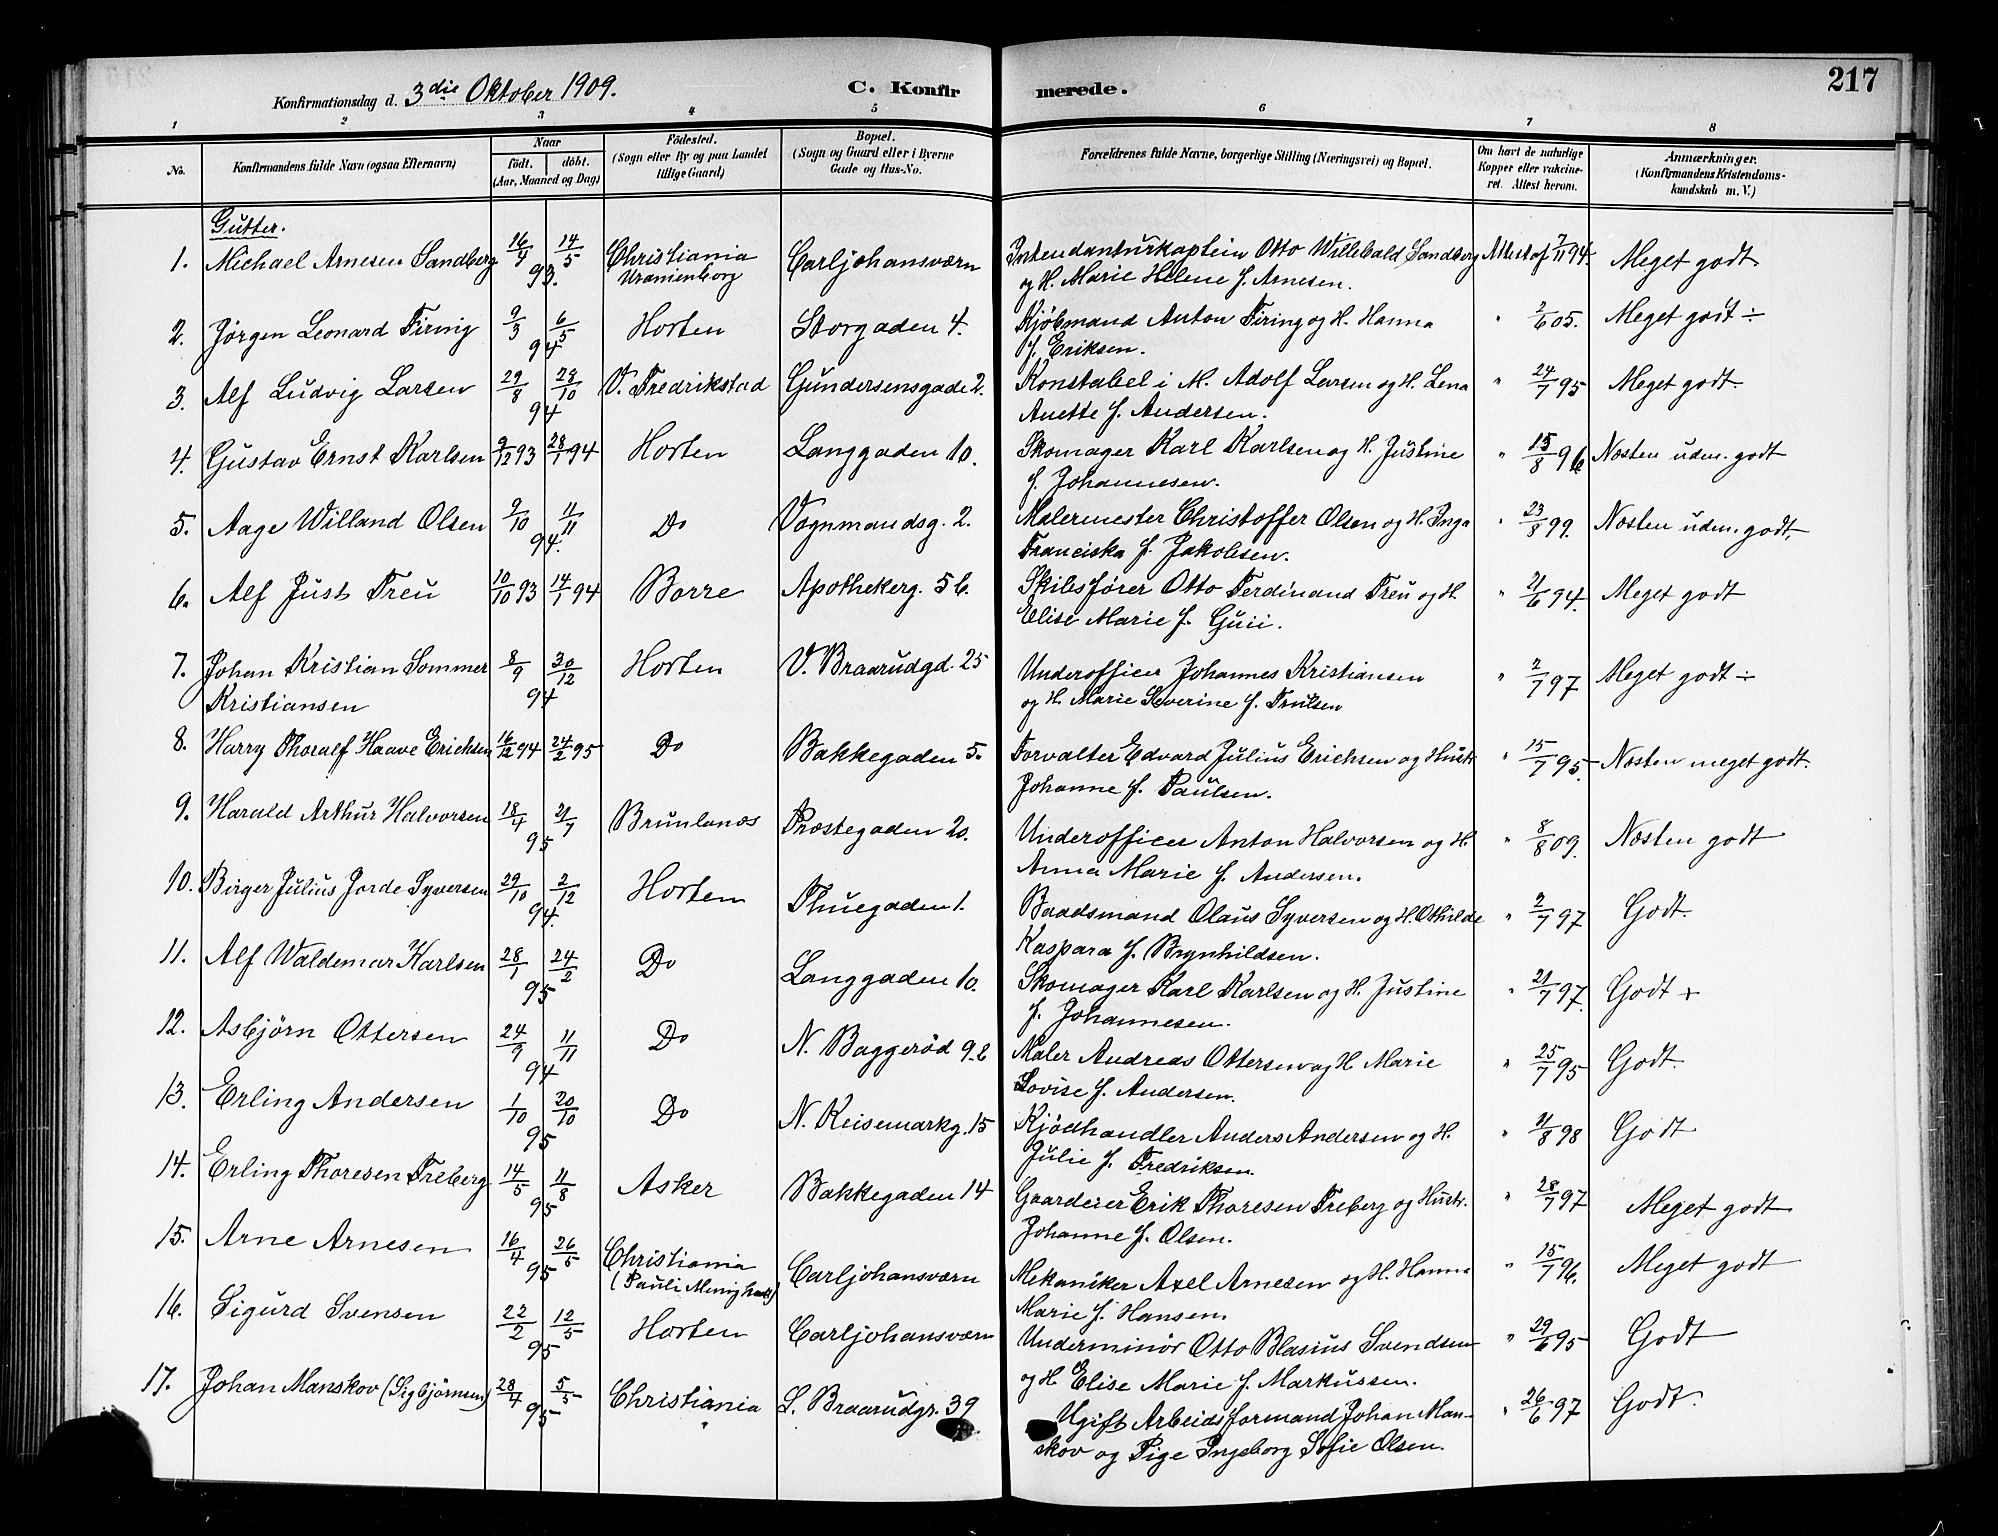 217
Konfirmationsdag d. 3die Oktober 1909. C. Konfirmerede.
1 2 3 4 5 6 7 8
No. Konfirmandens fulde Navn (ogsaa Efternavn) Naar født. døbt. (Aar, Maaned og Dag) Fødested. (Sogn eller By og paa Landet tillige Gaard) Bopæl. (Sogn og Gaard eller i Byerne Gade og Hus-No. Forældrenes fulde Navne, borgerlige Stilling (Næringsvei) og Bopæl. Om havt de naturlige Kopper eller vakcineret. Attest herom. Anmærkninger. (Konfirmandens Kristendomskundskab m. V.)
Gutter.
1. Michael Arnesen Sandberg 16/4 14/5 93. Christiania Uranienborg Carljohansværn Intendanturkaptein Otto Willebald Sandberg og H. Marie Helene f. Arnesen. Attest af 7/11 94. Meget godt
2. Jørgen Leonard Firing 9/3 6/5 94 Horten Storgaden 4. Kjøbmand Anton Firing og H. Hanna f. Eriksen. " 2/6 05. Meget godt ÷
3. Alf Ludvig Larsen 29/8 28/10 94 V. Fredrikstad Gundersensgade 2. Konstabel i M. Adolf Larsen og H. Lena Anette f. Andersen. " 24/7 95 Meget godt
4. Gustav Ernst Karlsen 9/12 93 28/1 94 Horten Langgaden 10. Skomager Karl Karlsen og H. Justine f. Johannesen. " 15/8 96 Næsten udm. godt
5. Aage Willand Olsen 9/10 11/11 94. Do Vognmandsg. 2. Malermester Christoffer Olsen og H. Inga Franciska f. Jakobsen. " 23/8 99. Næsten udm. godt
6. Alf Just Treu 10/10 93 14/1 94 Borre Apothekerg. 5 b. Skibsfører Otto Ferdinand Treu og H. Elise Marie f. " 21/6 94. Meget godt
7. Johan Kristian Sommer Kristiansen 8/9 30/12 94 Horten V. Braarudgd. 25 Underofficer Johannes Kristiansen og H. Marie Severine f. Trulsen " 2/7 97 Meget godt ÷
8. Harry Thoralf Haave Erichsen 16/12 94 24/2 95 Do Bakkegaden 5. Forvalter Edvard Julius Erichsen og Hustr. Johanne f. Paulsen. " 15/7 95. Næsten meget godt.
9. Harald Arthur Halvorsen 18/4 21/7 95 Brunlanæs Præstegaden 20. Underofficer Anton Halvorsen og H. Anna Marie f. Andersen. " 8/8 09. Næsten godt
10. Birger Julius Jorde Syversen 29/10 2/12 94. Horten Thuegaden 1. Baadsmand Olaus Syversen og H. Othilde Kaspara f. Brynhildsen. " 2/7 97 Godt
11. Alf Waldemar Karlsen 28/1 24/2 95 Do Langgaden 10. Skomager Karl Karlsen og H. Justine f. Johannesen. " 21/7 97. Godt +
12. Asbjørn Ottersen 24/9 11/11 94 Do N. Baggerød 9. b Maler Andreas Ottersen og H. Marie Lovise f. Andersen. " 25/7 95 Godt
13. Erling Andersen 1/10 20/10 95 Do N. Keisemarkg. 15 Kjødhandler Anders Andersen og H. Julie f. Fredriksen. " 21/8 98 Godt
14. Erling Thoresen Freberg 14/5 11/8 95 Asker Bakkegaden 14 Gaardeier Erik Thoresen Freberg og Hustr. Johanne f. Olsen. " 28/7 97 Meget godt
15. Arne Arnesen 16/4 26/5 95 Christiania (Pauli Menighed) Carljohansværn Mekaniker Axel Arnesen og H. Hanna Marie f. Hansen. " 15/7 96. Meget godt
16. Sigurd Svensen 22/2 12/5 95 Horten Carljohansværn Underminør Otto Blasius Svendsen og H. Elise Marie f. Markussen. " 29/6 95 Godt
17. Johan Manskov (Sigbjørnsen) 28/4 5/5 95 Christiania L. Braarudgr. 39 Ugift Arbeidsformand Johan Manskov og Pige Ingeborg Sofie Olsen. " 26/6 97 Godt.